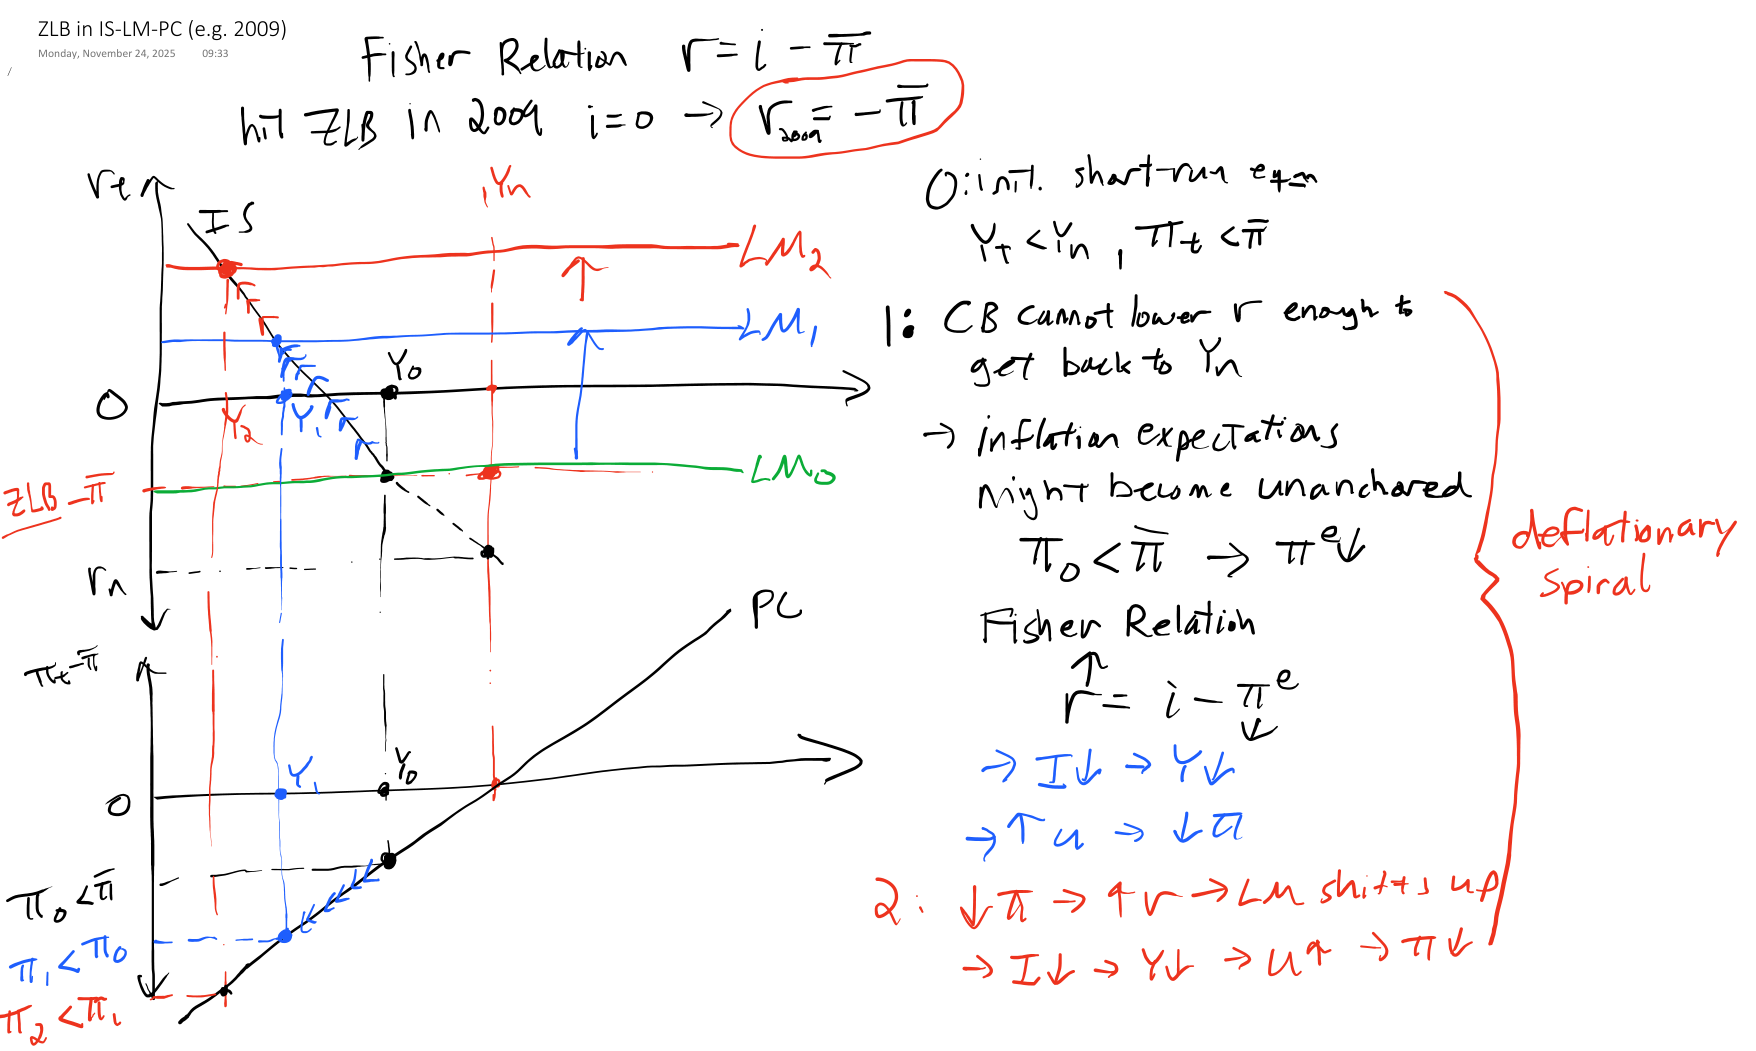 ZLB in IS-LM-PC (e.g. 2009)
Monday, November 24, 2025 09:33
Fisher Relation r = i - π̄
hit ZLB in 2009 i=0 → r₂₀₀₉ = -π̄
rₜ
IS
Yₙ
LM₂
LM₁
Y₀
0
Y₂
Y₁
LM₀
ZLB -π̄
rₙ
PC
πₜ-π̄
Y₁
Y₀
0
π₀<π̄
π₁<π₀
π₂<π₁
0: init. short-run eqm
Yₜ<Yₙ, πₜ<π̄
1: CB cannot lower r enough to
get back to Yₙ
→ inflation expectations
might become unanchored
π₀<π̄ → πᵉ↓
Fisher Relation
↑
r = i - πᵉ
↓
→ I↓ → Y↓
→ ↑u → ↓π
2: ↓π → ↑r → LM shifts up
→ I↓ → Y↓ → u↑ → π↓
deflationary
spiral